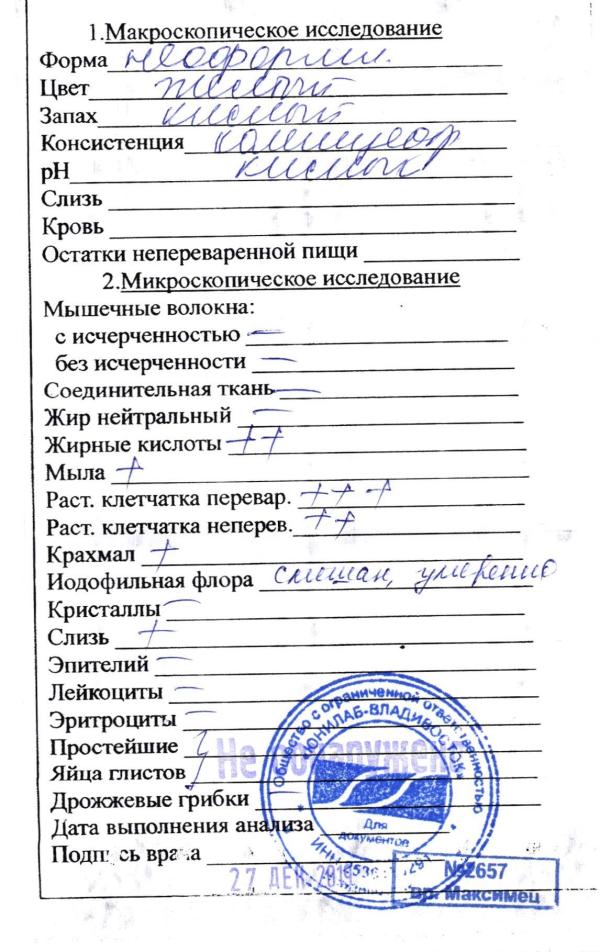 1.Макроскопическое исследование
Форма неоформл.
Цвет желтый
Запах кислый
Консистенция
pH кислый
Слизь
Кровь
Остатки непереваренной пищи
2.Микроскопическое исследование
Мышечные волокна:
с исчерченностью —
без исчерченности —
Соединительная ткань —
Жир нейтральный —
Жирные кислоты ++
Мыла +
Раст. клетчатка перевар. +++
Раст. клетчатка неперев. ++
Крахмал +
Иодофильная флора смешан, умеренно
Кристаллы —
Слизь +
Эпителий —
Лейкоциты —
Эритроциты —
Простейшие
Яйца глистов
Не обнаружен
Дрожжевые грибки
Дата выполнения анализа
Подпись врача
27 ДЕК
Общество с ограниченной ответственностью
ЮНИЛАБ-ВЛАДИВОСТОК
Для
документов
ИНН
№2657
вр. Максимец